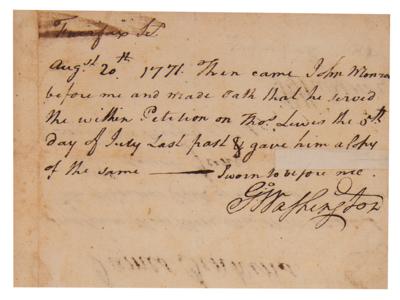 Fairfax Sc.
Augst. 20th. 1771. Then came John Monroe
before me and made Oath that he served
the within Petition on Thos. Lewis the 5th
day of July Last past & gave him a Copy
of the same — Sworn to before me.
Go Washington